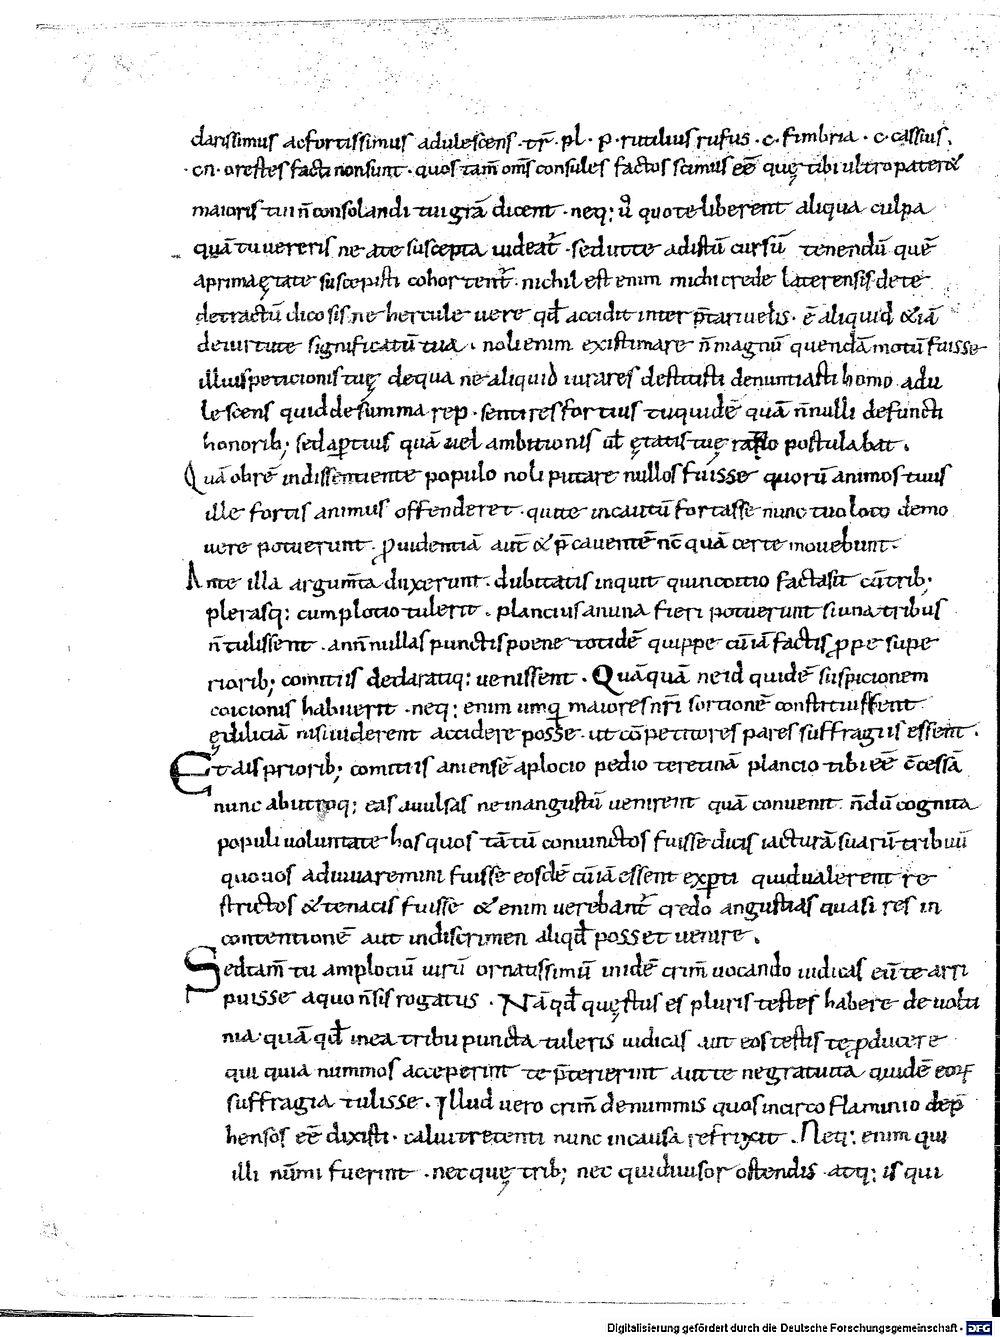 clarissimus acfortissimus adulescens · tr̄ · pl · p · rutilius rufus · c · fimbria · c · cassius ·
· cn · orestes facti non sunt · quos tam̄ om̄s consules factos scimus eē quę tibi ultro pater &
maioris tui n̄ consolandi tui grā dicent · neq; ū quo te liberent aliqua culpa
quā tu uereris ne a te suscepta uideat̄ · sed ut te ad istū cursū tenendū quē
aprima ętate suscepisti cohortent̄ · nichil est enim michi crede laterensis de te
detractū dico sis ne hercule uere qd̄ accidit interp̄tari uelis · ē aliquid & iā
deuirtute significatū tua · noli enim existimare n̄ magnū quendā motū fuisse
illius peticionis tuę dequa ne aliquid iurares destitisti denuntiasti homo adu
lescens quid de summa rep · sentires fortius tu quidē quā n̄nulli defuncti
honorib; sed apertius quā uel ambitionis ul̄ ętatis tuę ratio postulabat ·
Quā obrē in dissentiente populo noli putare nullos fuisse quorū animos tuus
ille fortis animus offenderet · qui te incautū fortasse nunc tuo loco demo
uere potuerunt · ꝓuidentiā aut̄ & p̄cauentē nc̄ quā certe mouebunt ·
An te illa argum̄ta duxerunt · dubitatis inquit quin coitio facta sit cū trib;
plerasq; cum plotio tulerit · plancius an una fieri potuerunt si una tribus
n̄ tulissent · an n̄ nullas punctis poene totidē quippe cū iā factis ꝓpe supe
riorib; comitiis declaratiq; uenissent · Quāquā ne id quidē suspicionem
coicionis habuerit · neq; enim umq̄ maiores nr̄i sortionē constituissent
ędiliciā nisi uiderent accidere posse · ut cōpetitores pares suffragiis essent ·
Et ais priorib; comitiis aniensē a plocio pedio teretinā plancio tibi eē c̄cessā
nunc ab utroq; eas auulsas ne in angustū uenirent quā conuenit n̄dū cognita
populi uoluntate hos quos tā tū coniunctos fuisse dicis iacturā suarū tribuū
quo uos adiuuaremini fuisse eosdē cū iā essent exꝑti quid ualerent re
strictos & tenacis fuisse & enim uerebant̄ credo angustias quasi res in
contentionē aut in discrimen aliqd̄ posset uenire ·
Sed tam̄ tu a mplociū uirū ornatissimū in idē crim̄ uocando iudicas eū te arri
puisse a quo n̄ sis rogatus · Nā qd̄ quęstus es pluris testes habere de uolti
nia · quā qd̄ in ea tribu puncta tuleris iudicas aut eos testis te ꝓducere
qui quia nummos acceperint te p̄terierint aut te ne gratuita quidē eoꝝ
suffragia tulisse · Illud uero crim̄ de nummis quos in circo flaminio dep̄
hensos eē dixisti · caluit recenti nunc in causa refrixit · Neq; enim qui
illi nūmi fuerint · nec quę trib; nec qui diuisor ostendis atq; is qui
Digitalisierung gefördert durch die Deutsche Forschungsgemeinschaft - DFG